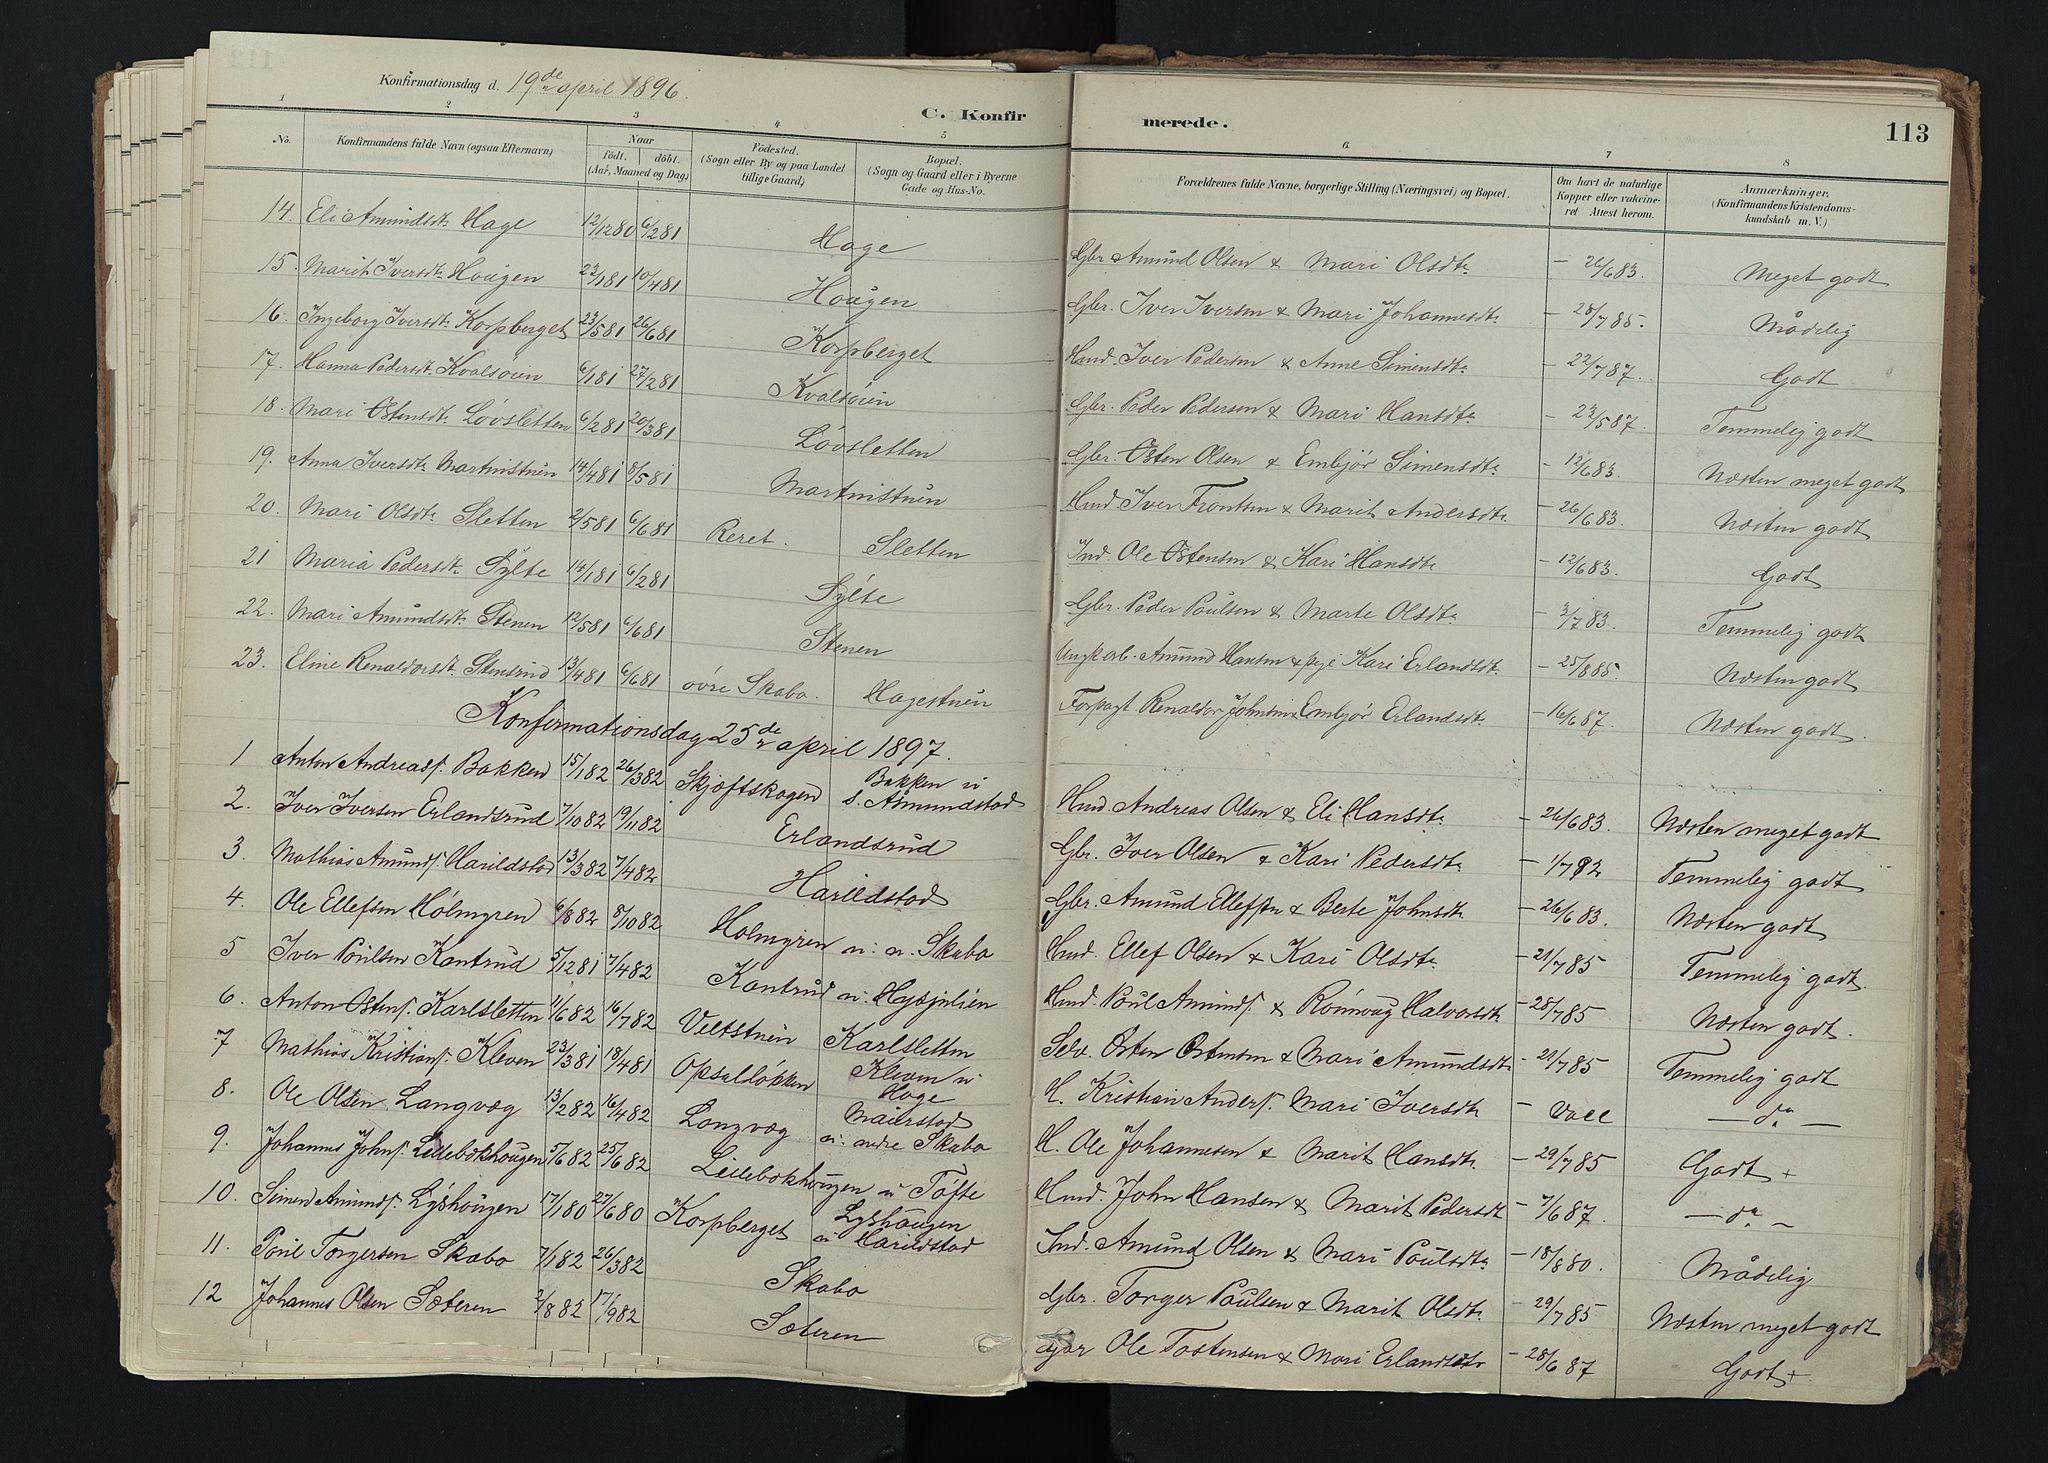 112
Konfirmationsdag d. 19de april 1896.
C. Konfirmerede.
113
1 2 3 4 5 6 7 8
No. | Konfirmandens fulde Navn (ogsaa Efternavn) | Naar födt. döbt. (Aar, Maaned og Dag) | Födested. (Sogn eller By og paa Landet tillige Gaard) | Bopæl. (Sogn og Gaard eller i Byerne Gade og Hus-No. | Forældrenes fulde Navne, borgerlige Stilling (Næringsvei) og Bopæl. | Om havt de naturlige Kopper eller vakcineret Attest herom. | Anmærkninger, (Konfirmandens Kristendomskundskab m. V.)
14 Eli Amundsdtr Hage 12/12 80 6/2 81 Hage Gbr. Amund Olsen & Mari Olsdtr - 26/6 83. Meget godt
15. Marit Iversdtr Hougen 23/1 81 10/4 81 Hougen Gbr. Iver Iversen & Mari Johannesdtr - 28/7 85. Mådelig
16. Ingeborg Iversdtr Korpberget 23/5 81 26/6 81 Korpberget Hmd. Iver Pedersen & Anne Simensdtr - 22/7 87. Godt
17. Hanna Pedersdtr Kvalsöien 6/1 81 27/2 81 Kvalsöien Gbr. Peder Pedersen & Mari Hansdtr - 23/5 87. Temmelig godt
18. Mari Östensdtr Lövsletten 6/2 81 20/3 81 Lövsletten Gbr. Östen Olsen & Embjör Simensdtr - 12/6 83. Næsten meget godt
19. Anna Iversdtr Martinstuen 14/4 81 8/5 81 Martinstuen Hmd. Iver Frontsen & Marit Andersdtr - 26/6 83. Næsten godt
20. Mari Olsdtr Sletten 2/5 81 6/6 81 Reret. Sletten Ind. Ole Östensen & Kari Hansdtr - 12/6 83. Godt
21 Maria Pedersdtr Sylte 14/1 81 6/2 81 Sylte Gbr. Peder Poulsen & Marte Olsdtr - 3/7 83. Temmelig godt
22. Mari Amundsdtr Stenen 12/5 81 6/6 81 Stenen Ungkarl. Amund Hansen & pige Kari Erlandsdtr - 25/8 85. Næsten godt
23. Eline Renaldorsdt. Stensrud 13/4 81 6/6 81 övre Skabo. Hagestuen Forpagt Renaldor Johnsen & Embjör Erlandsdtr - 16/6 87. Næsten godt.
Konfirmationsdag 25de april 1897.
1 Anton Andreass. Bakken 15/1 82 26/3 82 Skjæftskogen Bakken u s. Åsmundstad Hmd. Andreas Olsen & Eli Hansdtr - 26/6 83. Næsten meget godt
2. Iver Iversen Erlandsrud 7/10 82 19/11 82 Erlandsrud Gbr. Iver Olsen & Kari Pedersdtr - 1/7 92 Temmelig godt
3. Mathias Amunds. Harildstad 13/3 82 7/4 82 Harildstad Gbr. Amund Ellefsen & Berte Johnsdtr - 26/6 83. Næsten godt
4. Ole Ellefsen Holmgren 6/8 82 8/10 82 Holmgren u. n. Skabo Hmd. Ellef Olsen & Kari Olsdtr - 21/7 85 Temmelig godt.
5 Iver Poulsen Kantrud 5/12 81 7/4 82 Kantrud u. Hysjulien Hmd. Poul Amunds. & Rönnaug Halvorsdtr - 28/7 85 Næsten godt.
6. Anton Östens. Karlsletten 11/6 82 16/7 82 Veltstuen Karlsletten Selv. Östen Östensen & Mari Amundsdtr - 21/7 85 Temmelig godt
7 Mathias Kristians. Kleven 23/3 81 18/4 81 Opsalløkken Kleven u Hage H. Kristian Anders. Mari Iversdtr - Vacc — do —
8. Ole Olsen Langvæg 13/2 82 16/4 82 Langvæg u. nedre Skabo H. Ole Johannesen & Marit Hansdtr - 29/7 85 Godt +
9. Johannes Johns. Lillebekhougen 5/6 82 25/6 82 Lillebekhougen u Tofte Hmd. John Hansen & Marit Pedersdtr - 7/6 87. — do —
10. Simen Amunds. Lyshougen 17/1 80 27/6 80 Korpberget Lyshougen u Harildstad Ind. Amund Olsen & Mari Poulsdtr - 18/8 80. Mådelig
11. Poul Torgersen Skabo 7/1 82 26/3 82 Skabo Gbr. Torger Poulsen & Marit Olsdtr - 29/7 85 Næsten meget godt
12 Johannes Olsen Sæteren 2/8 82 17/9 82 Sæteren Gbr Ole Tostensen & Mari Erlandsdtr - 28/6 87 Godt +